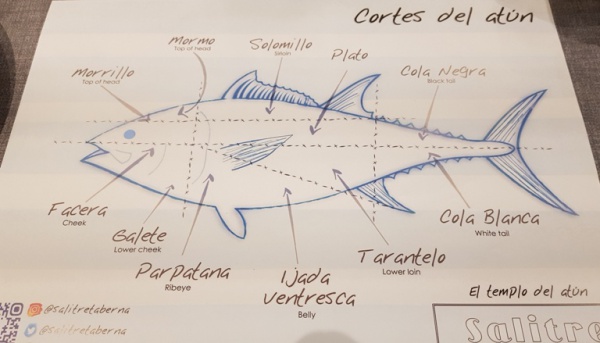 Cortes del atún
Mormo
Top of head
Solomillo
Sirloin
Plato
Morrillo
Top of head
Cola Negra
Black tail
Facera
Cheek
Galete
Lower cheek
Parpatana
Ribeye
Ijada
Ventresca
Belly
Tarantelo
Lower loin
Cola Blanca
White tail
El templo del atún
Salitre
@salitretaberna
@salitretaberna